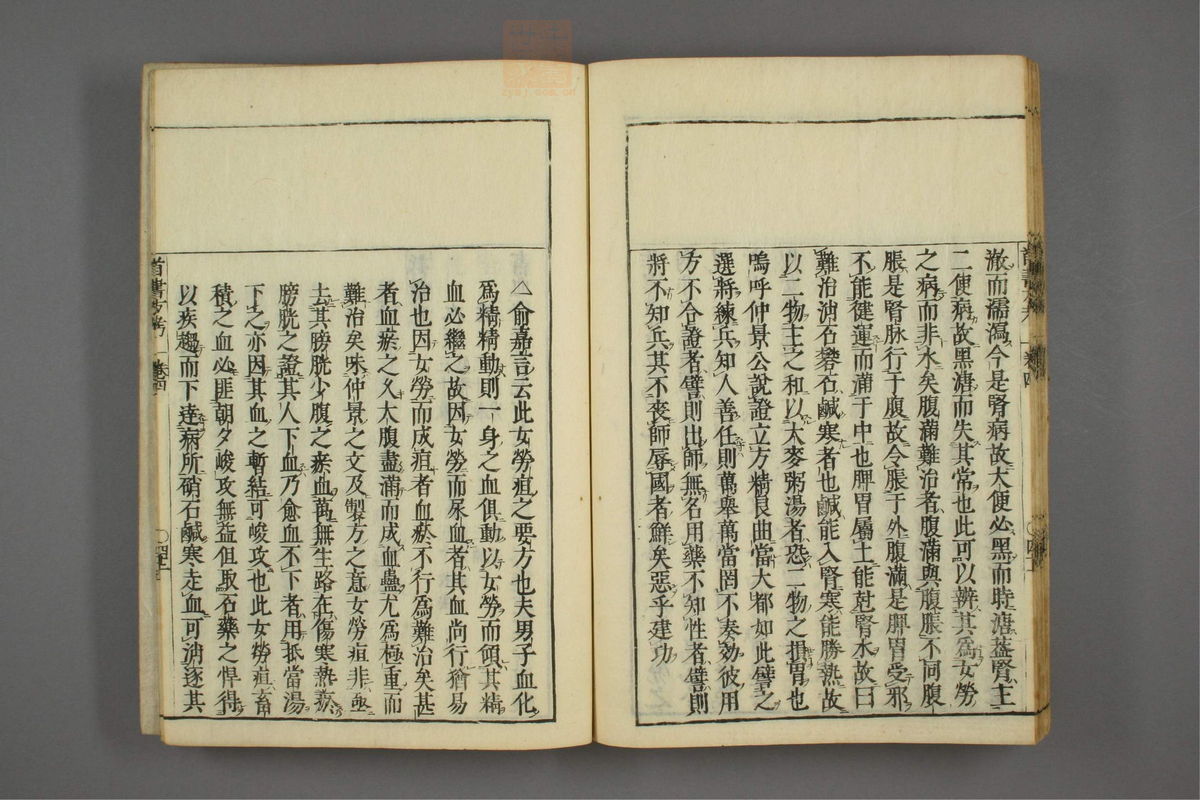 澈而濡瀉今是腎病故大便必黑而時溏蓋腎主
二便病故黑溏而失其常也此可以辨其爲女勞
之病而非水矣腹滿難治者腹滿與腹脹不同腹
脹是腎脉行于腹故令脹于外腹滿是脾胃受邪
不能健運而滿于中也脾胃屬土能尅腎水故曰
難治消石礬石鹹寒者也鹹能入腎寒能勝熱故
以二物主之和以大麥粥湯者恐二物之損胃也
嗚呼仲景公說證立方精良曲當大都如此譬之
選將練兵知人善任則萬舉萬當罔不奏効彼用
方不合證者譬則出師無名用藥不知性者譬則
將不知兵其不喪師辱國者鮮矣惡乎建功
△俞嘉言云此女勞疸之要方也夫男子血化
爲精精動則一身之血俱動以女勞而傾其精
血必繼之故因女勞而尿血者其血尚行猶易
治也因女勞而成疸者血瘀不行爲難治矣甚
者血瘀之久大腹盡滿而成血蠱尤爲極重而
難治矣味仲景之文及製方之意女勞疸非亟
去其膀胱少腹之瘀血萬無生路在傷寒熱瘀
膀胱之證其人下血乃愈血不下者用抵當湯
下之亦因其血之暫結可峻攻也此女勞疸畜
積之血必匪朝夕峻攻無益但取石藥之悍得
以疾趨而下達病所硝石鹹寒走血可消逐其
首書方考 卷四